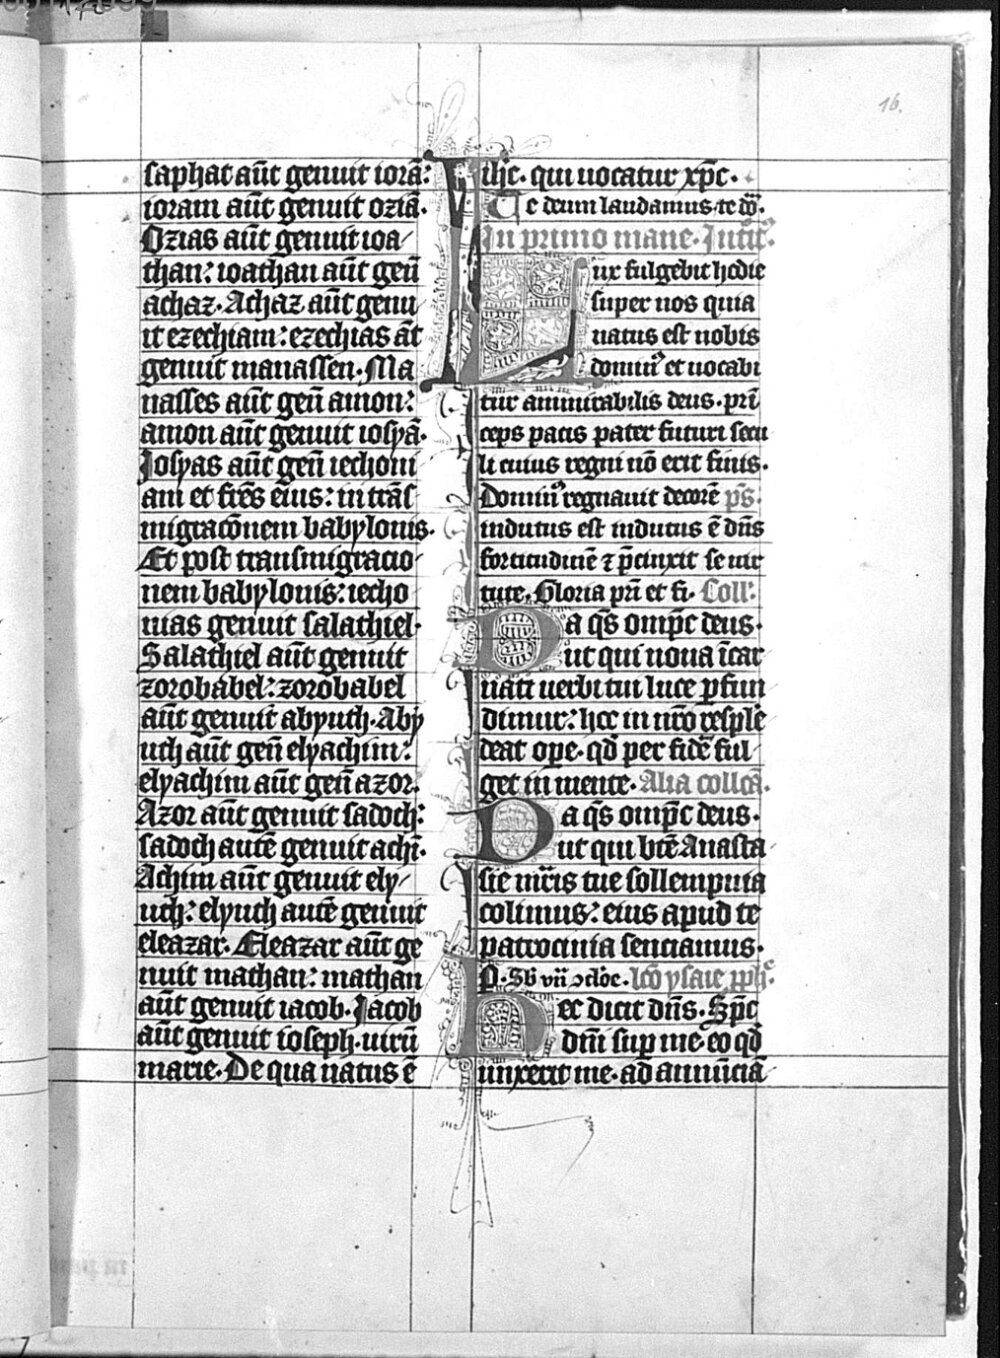 16.
saphat aūt genuit iorā:
ioram aūt genuit oziā.
Ozias aūt genuit ioa
than: ioathan aūt geñ
achaz. Achaz aūt genu
it ezechiam: ezechias āt
genuit manassen. Ma
nasses aūt geñ amon:
amon aūt genuit iosyā.
Josyas aūt geñ iechoni
am et frēs eius: in trāſ
migracōnem babylonis.
Et post transmigracio
nem babylonis: iecho
nias genuit salathiel.
Salathiel aūt genuit
zorobabel: zorobabel
aūt genuit abyuth. Aby
uth aūt geñ elyachim:
elyachim aūt geñ azor.
Azor aūt genuit sadoch:
sadoch autē genuit achī.
Achim aūt genuit ely
uth: elyuth autē genuit
eleazar. Eleazar aūt ge
nuit mathan: mathan
aūt genuit iacob. Jacob
aūt genuit ioseph. uirū
marie. De qua natus ē
ihc̄. qui uocatur xpc̄.
Te deum laudamus te dō.
In primo mane. Introit.
Lux fulgebit hodie
super nos quia
natus est nobis
dominꝰ et uocabi
tur ammirabilis deus. prī
ceps pacis pater futuri secu
li cuius regni nō erit finis.
Dominꝰ regnauit decorē ps̄.
indutus est indutus ē dn̄s
fortitudinē ⁊ p̄cinxit se uir
tute. Gloria pr̄i et fi. Coll:
Da qs̄ omp̄c deus.
ut qui noua īcar
nati uerbi tui luce ꝑfun
dimur: hoc in nr̄o resplē
deat oꝑe. qd̄ per fidē ful
get in mente. Alia collcā.
Da qs̄ omp̄c deus.
ut qui btē Anasta
sie mr̄is tue sollempnia
colimus: eius apud te
patrocinia sentiamus.
P. Sb̄ vn̄ ɔcl̄oc. lcō ysaie ꝓph̄e
Hec dicit dn̄s. Sp̄c
dn̄i suꝑ me. eo qd̄
unxerit me. ad annūciā